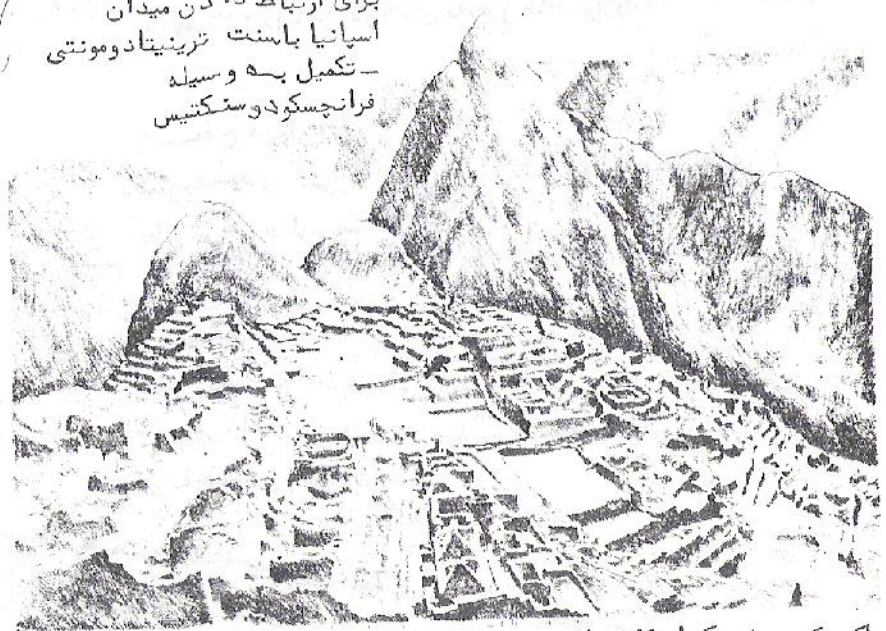 برای ارتباط دادن میدان
اسپانیا باسنت ترینیتادومونتی
ـ تکمیل بـه وسیله
فرانچسکودوسنکتیس